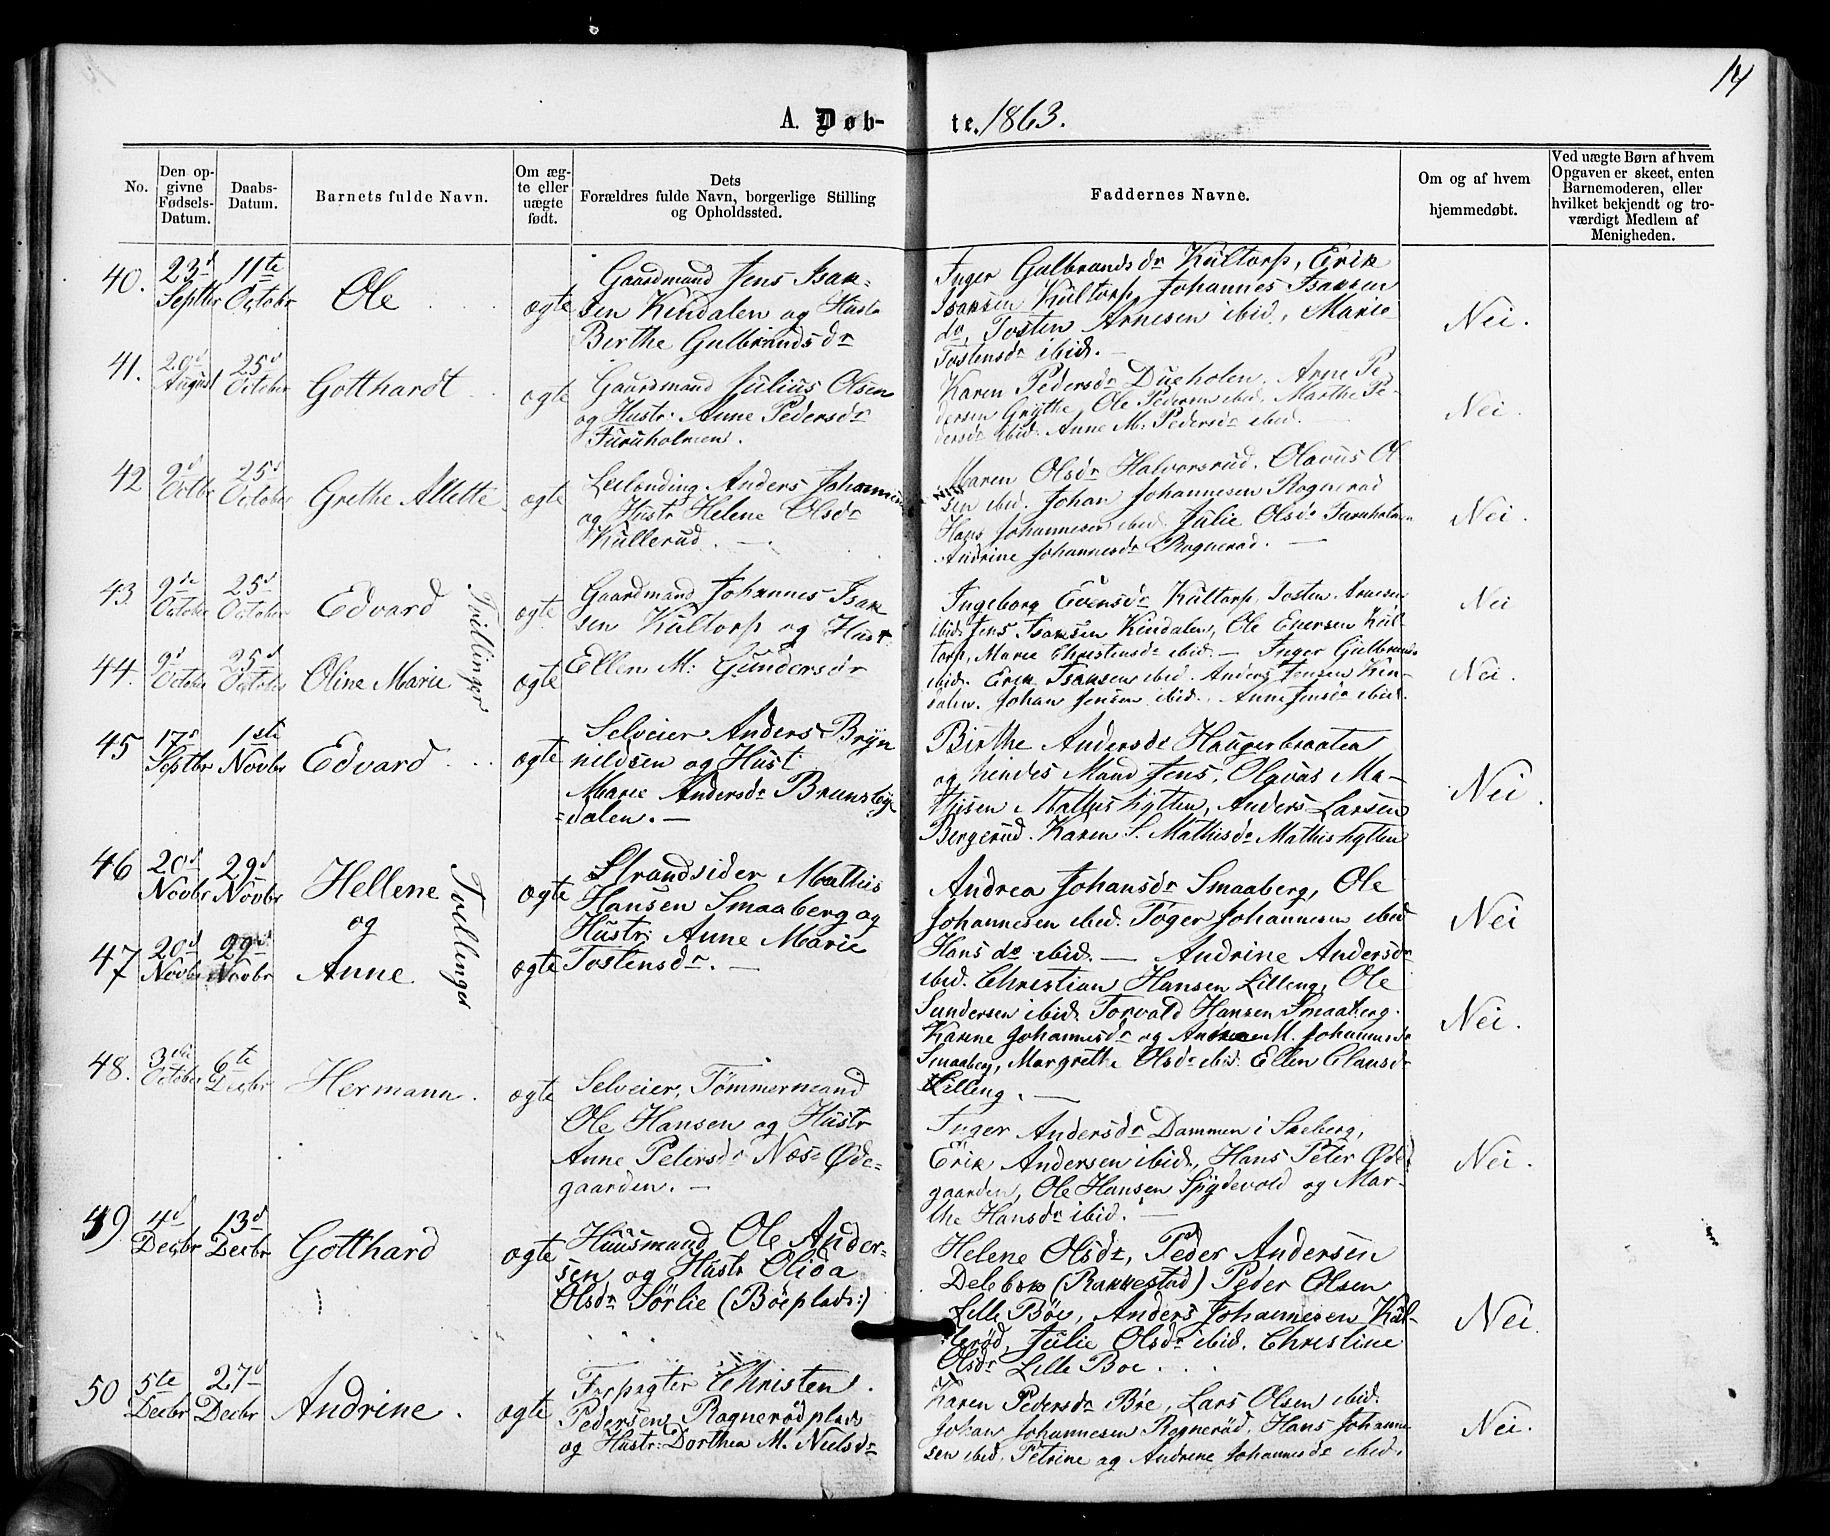 14
A. Døb-te. 1863.
No.
Den opgivne Fødsels-Datum.
Daabs-Datum.
Barnets fulde Navn.
Om ægte eller uægte født.
Dets
Forældres fulde Navn, borgerlige Stilling
og Opholdssted.
Faddernes Navne.
Om og af hvem
hjemmedøbt.
Ved uægte Børn af hvem
Opgaven er skeet, enten
Barnemoderen, eller
hvilket bekjendt og tro-
værdigt Medlem af
Menigheden.
40. 23d Septbr 11te Octobr Ole ægte
Gaardmand Jens Isak-
sen Kindalen og Hustr
Birthe Gulbrandsdr
Inger Gulbrandsdr Kültorp, Erik
Isaksen Kültorp, Johannes Isaksen
do, Tosten Arnesen ibid, Marie
Tostensdr ibid. —
Nei.
41. 20d August 25d October Gotthardt ægte
Gaardmand Julius Olsen
og Hustr: Anne Pedersdr
Furuholmen.
Karen Pedersdr Dueholen, Arne Pe-
dersen Grÿthe, Ole Pedersen ibid, Marthe Pe-
dersdr ibid. Anne M. Pedersdr ibid.
Nei.
42 9d Octbr 25d October Grethe Alette ægte
Leilending Anders Johannesen
og Hustr Helene Olsdr
Küllerud. —
Maren Olsdr Halvorsrud, Olavus Ol
sen ibid. Johan Johannesen Rognerød
Hans Johannesen ibid. Julie Olsdr Furuholmen
Andrine Johannesdr Rognerød. —
Nei.
43. 9de October 25d October Edvard ægte
Tvillinger
Gaardmand Johannes Isak
sen Kültorp og Hustr
Ellen M. Gundersdr
Ingeborg Evensdr Kültorp, Tosten Arnesen
ibid. Jens Isaksen Kindalen, Ole Enersen Kül-
torp, Marie Christensdr ibid. — Inger Gulbransdr
ibid. Erik Isaksen ibid. Anders Jensen Kin-
dalen. Johan Jensen ibid. Anne Jensdr ibid.
Nei
44. 9d October 25d October Oline Marie ægte
Nei.
45 17d Septbr 1ste Novbr Edvard ægte
Selveier Anders Bryn
nildsen og Hust.
Marie Andersdr Brunsby-
dalen. —
Birthe Andersdr Haugerbraaten
og hendes Mand Jens, Olavus Ma-
thisen Mathishytten, Anders Larsen
Bergerud. Karen S. Mathisdr Mathishytten
Nei.
46 20d Novbr 29d Novbr Hellene ægte
og
Tvillinger
Strandsider Mathis
Hansen Smaaberg og
Hustr: Anne Marie
Tostensdr. —
Andrea Johansdr Smaaberg, Ole
Johannesen ibid. Toger Johannesen ibid
Hans do ibid. — Andrine Andersdr
ibid. Christian Hansen Lilleng, Ole
Gundersen ibid. Torvald Hansen Smaaberg.
Karine Johannesdr og Andrea M. Johannesdr
Smaaberg, Margrethe Olsdr ibid. Ellen Clausdr
Lilleng. —
Nei
47 20d Novbr 29d Novbr Anne ægte
Nei.
48. 3die October 6te Decbr Hermann. ægte
Selveier, Tømmermand
Ole Hansen og Hustr
Anne Petersdr Næs Øde-
gaarden. —
Inger Andersdr Dammen i Skeberg,
Erik Andersen ibid, Hans Peter Øde
gaarden, Ole Hansen Spydevold og Mar-
the Hansdr ibid. —
Nei.
49 4d Decbr 13d Decbr Gotthard ægte
Huusmand Ole Ander-
sen og Hustr Olida
Olsdr Sørlie (Böeplads:)
Helene Olsdr, Peder Andersen
Delebæk (Rakkestad) Peder Olsen
Lille Böe, Anders Johannesen Kül-
lerød, Julie Olsdr ibid. Christine
Olsdr Lille Boe.
Nei
50 5te Decbr 27d Decbr Andrine. ægte
Forpagter Christen
Pedersen Rognerødplads
og Hustr: Dorthea M. Nielsdr
Karen Pedersdr Bøe, Lars Olsen ibid.
Johan Johannesen Rognerød, Hans Johanne
sen ibid, Petrine og Andrine Johannesdr ibid.
Nei.